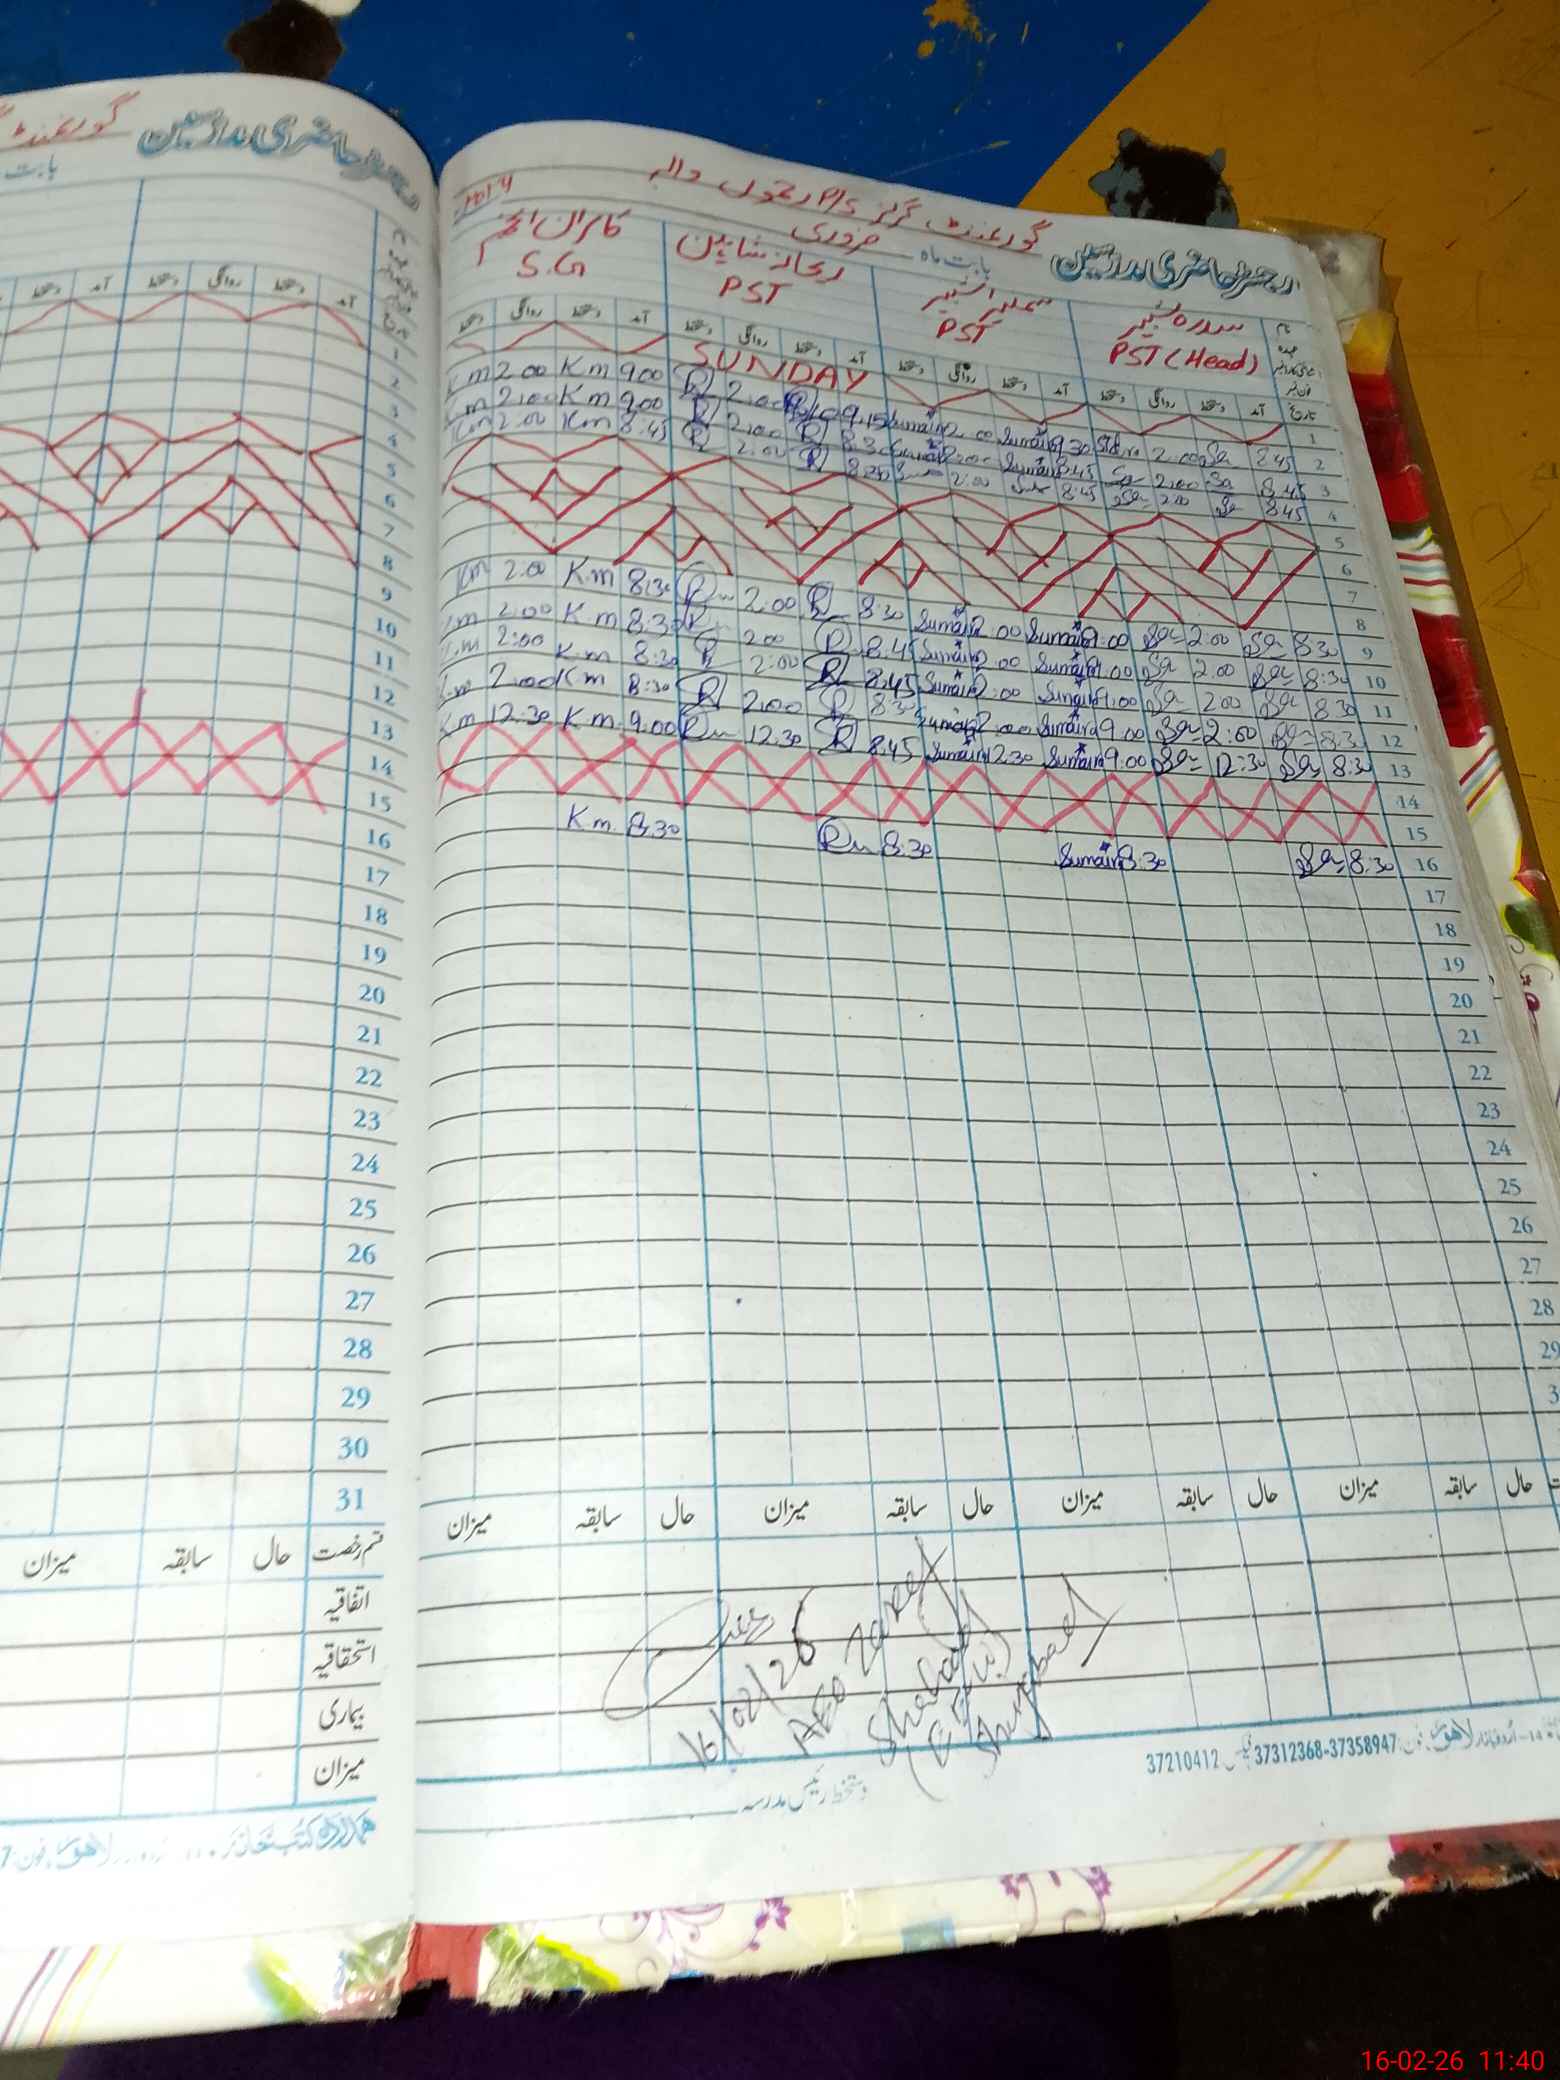 رجسٹر حاضری مدرسین گورنمنٹ
بابت
گورنمنٹ گرلز P/S
رجسٹر حاضری مدرسین بابت ماہ فروری
نام سدرہ شبیر سمیرا شبیر ریحانہ شاہین کامران انجم
عہدہ PST (Head) PST PST S.G
تاریخ آمد دستخط روانگی دستخط آمد دستخط روانگی دستخط آمد دستخط روانگی دستخط آمد دستخط روانگی دستخط
1 SUNDAY
Km 2.00 Km 9.00 R 2.00 R 9.15 Sumaira 2.00 Sumaira 9.30 2.00 Sa 8.45 2
Km 2.00 Km 9.00 R 2.00 R 8.30 2.00 Sumaira 8.45 Sa 2.00 Sa 8.45 3
Km 2.00 Km 8:45 R 2.00 R 8:30 2:00 8:45 Sa 2.00 Sa 8.45 4
5
6
7
8
Km 2.00 K.m 8:30 R 2:00 R 8:30 Sumaira 2.00 Sumaira 9.00 Sa 2:00 Sa 8:30 9
K.m 2.00 K.m 8:30 R 2.00 R 8.45 Sumaira 2.00 Sumaira 9.00 Sa 2.00 Sa 8:30 10
K.m 2:00 K.m 8:30 R 2:00 R 8.45 Sumaira 2:00 Sumaira 9:00 Sa 2.00 Sa 8.30 11
K.m 2.00 Km 8:30 R 2.00 R 8:30 Sumaira 2.00 Sumaira 9.00 Sa 2:00 Sa 8:30 12
K.m 12:30 K.m 9:00 R 12.30 R 8.45 Sumaira 12.30 Sumaira 9:00 Sa 12:30 Sa 8:30 13
14
15
K.m. 8:30 R 8:30 Sumaira 8:30 Sa 8:30 16
17
18
19
20
21
22
23
24
25
26
27
28
29
حال سابقہ میزان حال سابقہ میزان حال سابقہ میزان حال سابقہ میزان
16/02/26
AEO Zafar
Shabad
دستخط رئیس مدرسہ
لاہور فون: 37358947-37312368 فیکس 37210412
1
2
3
4
5
6
7
8
9
10
11
12
13
14
15
16
17
18
19
20
21
22
23
24
25
26
27
28
29
30
31
قسم رخصت حال سابقہ میزان
اتفاقیہ
استحقاقیہ
بیماری
میزان
ہمدرد کتب خانہ لاہور فون: 7
16-02-26 11:40